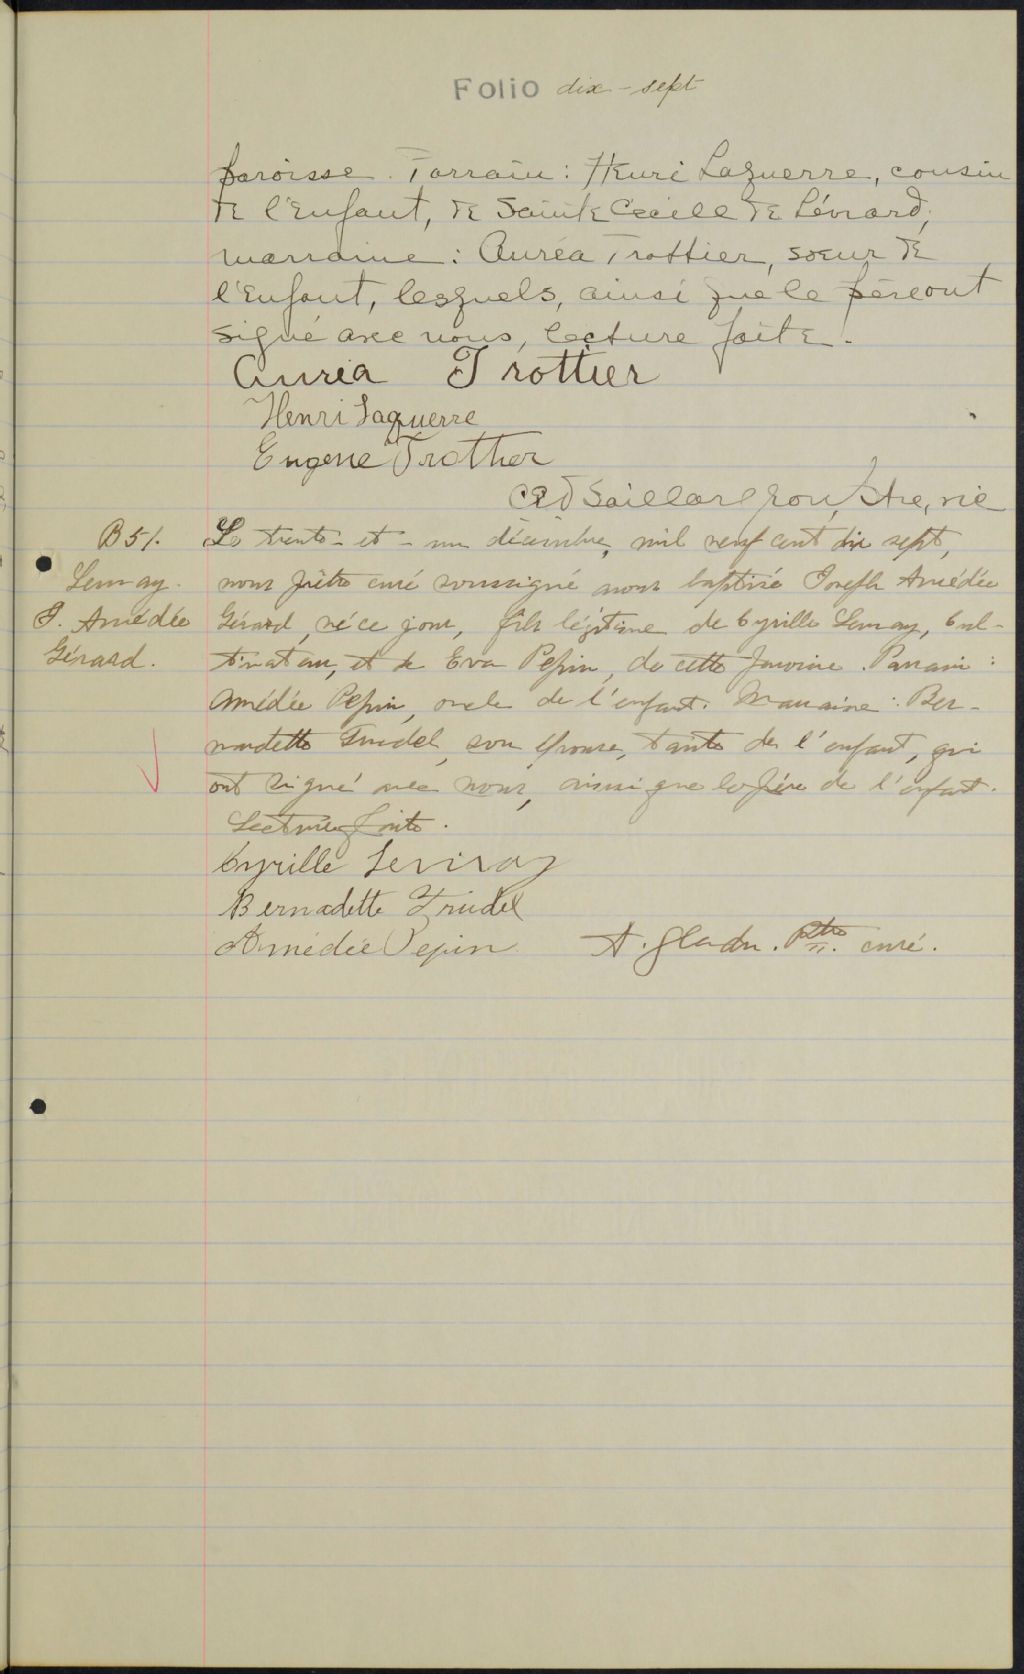 Folio dix-sept
paroisse. Parrain: Henri Laquerre, cousin
de l'Enfant, de Sainte Cecile de Lévrard;
marraine: Auréa Trottier, sœur de
l'Enfant, lesquels, ainsi que le père ont
signé avec nous, lecture faite.
Auréa Trottier
Henri Laquerre
Eugene Trottier
Ptre, vic
B 51.
Lemay.
J. Amédée
Gérard.
Le trente-et-un décembre, mil neuf cent dix sept,
nous prêtre curé soussigné avons baptisé Joseph Amédée
Gérard, né ce jour, fils légitime de Cyrille Lemay, Cul-
tivateur, et de Eva Pepin, de cette paroisse. Parrain:
Amédée Pepin, oncle de l'enfant. Marraine: Ber-
nadette Trudel, son épouse, tante de l'enfant, qui
ont signé avec nous, ainsi que le père de l'enfant.
Lecture faite.
Cyrille Lemay
Bernadette Trudel
Amédée Pepin A. Gladu. Ptre curé.